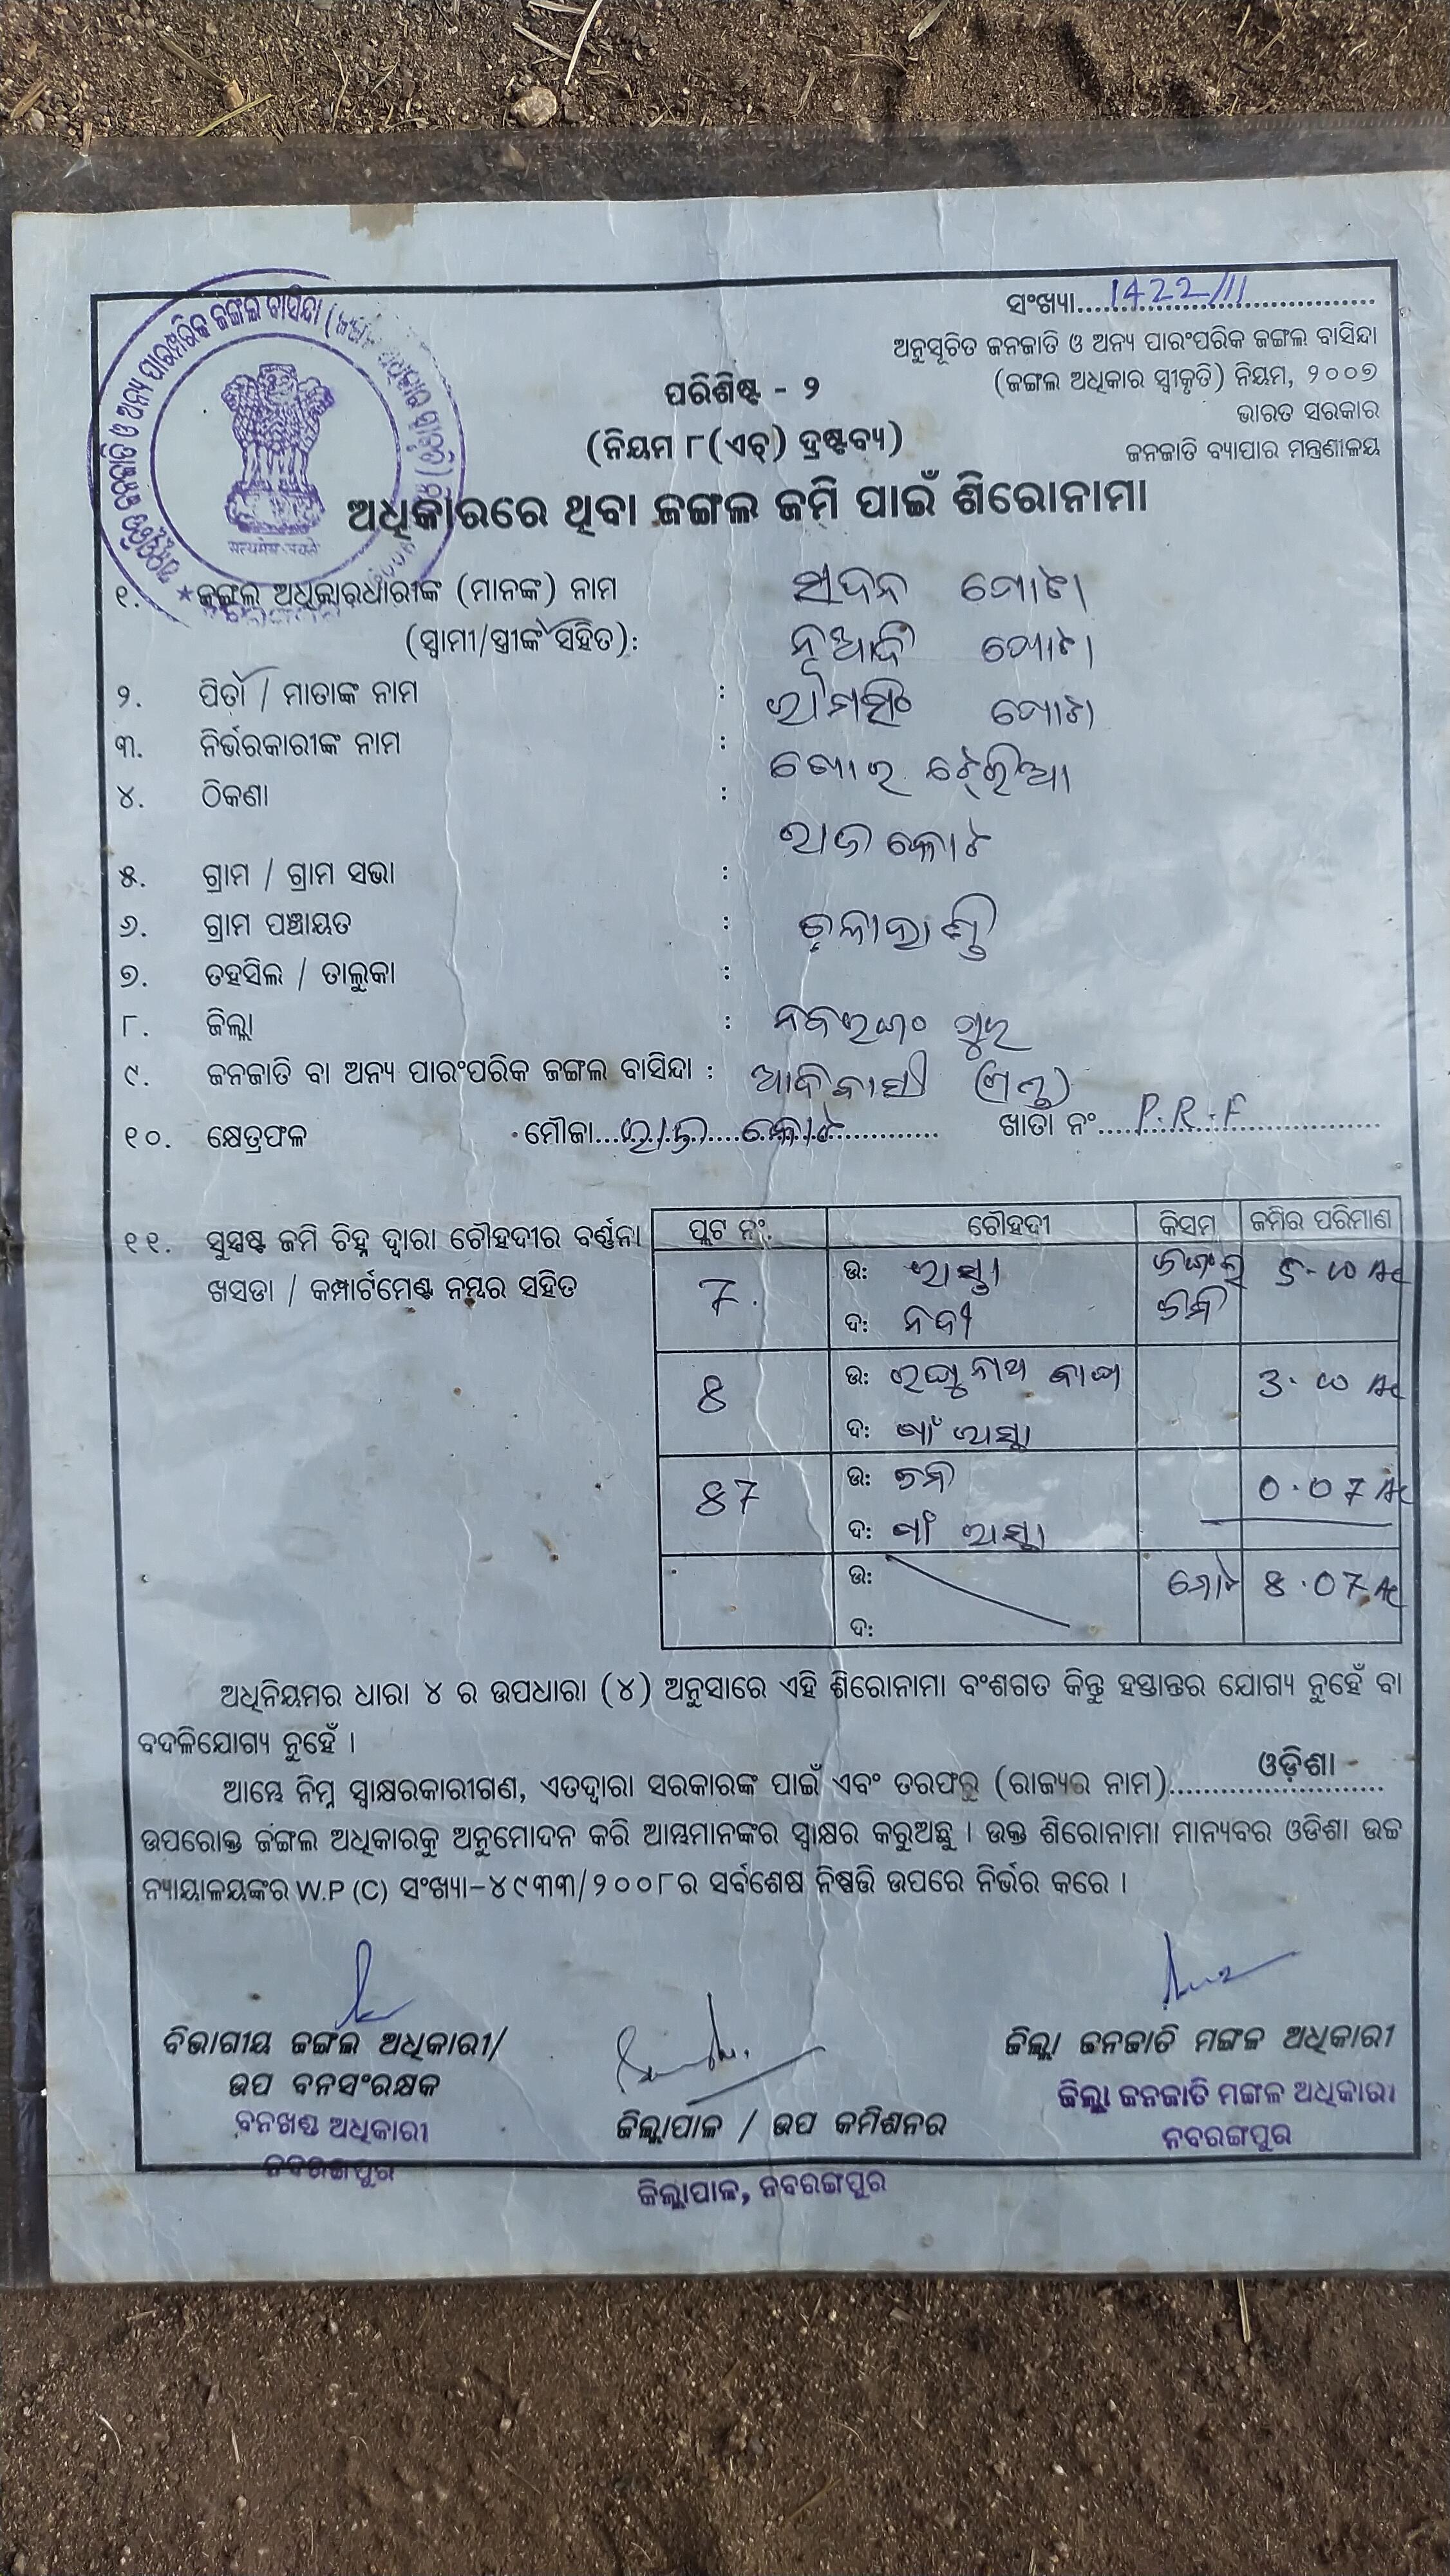 ସଂଖ୍ୟା....1422/11....
ଅନୁସୂଚିତ ଜନଜାତି ଓ ଅନ୍ୟ ପାରଂପରିକ ଜଙ୍ଗଲ ବାସିନ୍ଦା
(ଜଙ୍ଗଲ ଅଧିକାର ସ୍ୱୀକୃତି) ନିୟମ, ୨୦୦୭
ଭାରତ ସରକାର
ଜନଜାତି ବ୍ୟାପାର ମନ୍ତ୍ରଣାଳୟ
ପରିଶିଷ୍ଟ - ୨
(ନିୟମ ୮(ଏଚ୍) ଦ୍ରଷ୍ଟବ୍ୟ)
ଅନୁସୂଚିତ ଜନଜାତି ଓ ଅନ୍ୟ ପାରମ୍ପରିକ ଜଙ୍ଗଲ ବାସିନ୍ଦା
सत्यमेव जयते
ଅଧିକାରରେ ଥିବା ଜଙ୍ଗଲ ଜମି ପାଇଁ ଶିରୋନାମା
୧. ଜଙ୍ଗଲ ଅଧିକାରଧାରୀଙ୍କ (ମାନଙ୍କ) ନାମ ସାଦନ ଗୋଣ୍ଡ
(ସ୍ୱାମୀ/ସ୍ତ୍ରୀଙ୍କ ସହିତ):
୨. ପିତା / ମାତାଙ୍କ ନାମ :
୩. ନିର୍ଭରକାରୀଙ୍କ ନାମ :
୪. ଠିକଣା :
ରାଜକୋଟ
୫. ଗ୍ରାମ / ଗ୍ରାମ ସଭା :
୬. ଗ୍ରାମ ପଞ୍ଚାୟତ :
୭. ତହସିଲ / ତାଲୁକା :
୮. ଜିଲ୍ଲା : ନବରଙ୍ଗପୁର
୯. ଜନଜାତି ବା ଅନ୍ୟ ପାରଂପରିକ ଜଙ୍ଗଲ ବାସିନ୍ଦା : ଆଦିବାସୀ
୧୦. କ୍ଷେତ୍ରଫଳ ମୌଜା....ରାଜକୋଟ.... ଖାତା ନଂ....P.R.F....
୧୧. ସୁସ୍ପଷ୍ଟ ଜମି ଚିହ୍ନ ଦ୍ୱାରା ଚୌହଦୀର ବର୍ଣ୍ଣନା
ଖସଡା / କମ୍ପାର୍ଟମେଣ୍ଟ ନମ୍ବର ସହିତ
ପ୍ଲଟ ନଂ. ଚୌହଦୀ କିସମ ଜମିର ପରିମାଣ
7. ଉ: ରାସ୍ତା ଜଙ୍ଗଲ 5.00 Ac
ଦ: ନଦୀ ଜମି
8 ଉ: ରଘୁନାଥ 3.00 Ac
ଦ: ଗାଁ ରାସ୍ତା
87 ଉ: ଜମି 0.07 Ac
ଦ: ଗାଁ ରାସ୍ତା
ଉ: ମୋଟ 8.07 Ac
ଦ:
ଅଧିନିୟମର ଧାରା ୪ ର ଉପଧାରା (୪) ଅନୁସାରେ ଏହି ଶିରୋନାମା ବଂଶଗତ କିନ୍ତୁ ହସ୍ତାନ୍ତର ଯୋଗ୍ୟ ନୁହେଁ ବା
ବଦଳିଯୋଗ୍ୟ ନୁହେଁ ।
ଆମ୍ଭେ ନିମ୍ନ ସ୍ୱାକ୍ଷରକାରୀଗଣ, ଏତଦ୍ୱାରା ସରକାରଙ୍କ ପାଇଁ ଏବଂ ତରଫରୁ (ରାଜ୍ୟର ନାମ)....ଓଡ଼ିଶା....
ଉପରୋକ୍ତ ଜଙ୍ଗଲ ଅଧିକାରକୁ ଅନୁମୋଦନ କରି ଆମ୍ଭମାନଙ୍କର ସ୍ୱାକ୍ଷର କରୁଅଛୁ । ଉକ୍ତ ଶିରୋନାମା ମାନ୍ୟବର ଓଡିଶା ଉଚ୍ଚ
ନ୍ୟାୟାଳୟଙ୍କର W.P (C) ସଂଖ୍ୟା-୪୯୩୩/୨୦୦୮ର ସର୍ବଶେଷ ନିଷ୍ପତ୍ତି ଉପରେ ନିର୍ଭର କରେ ।
ବିଭାଗୀୟ ଜଙ୍ଗଲ ଅଧିକାରୀ/
ଉପ ବନସଂରକ୍ଷକ
ବନଖଣ୍ଡ ଅଧିକାରୀ
ନବରଙ୍ଗପୁର
ଜିଲ୍ଲାପାଳ / ଉପ କମିଶନର
ଜିଲ୍ଲାପାଳ, ନବରଙ୍ଗପୁର
ଜିଲ୍ଲା ଜନଜାତି ମଙ୍ଗଳ ଅଧିକାରୀ
ଜିଲ୍ଲା ଜନଜାତି ମଙ୍ଗଳ ଅଧିକାରୀ
ନବରଙ୍ଗପୁର